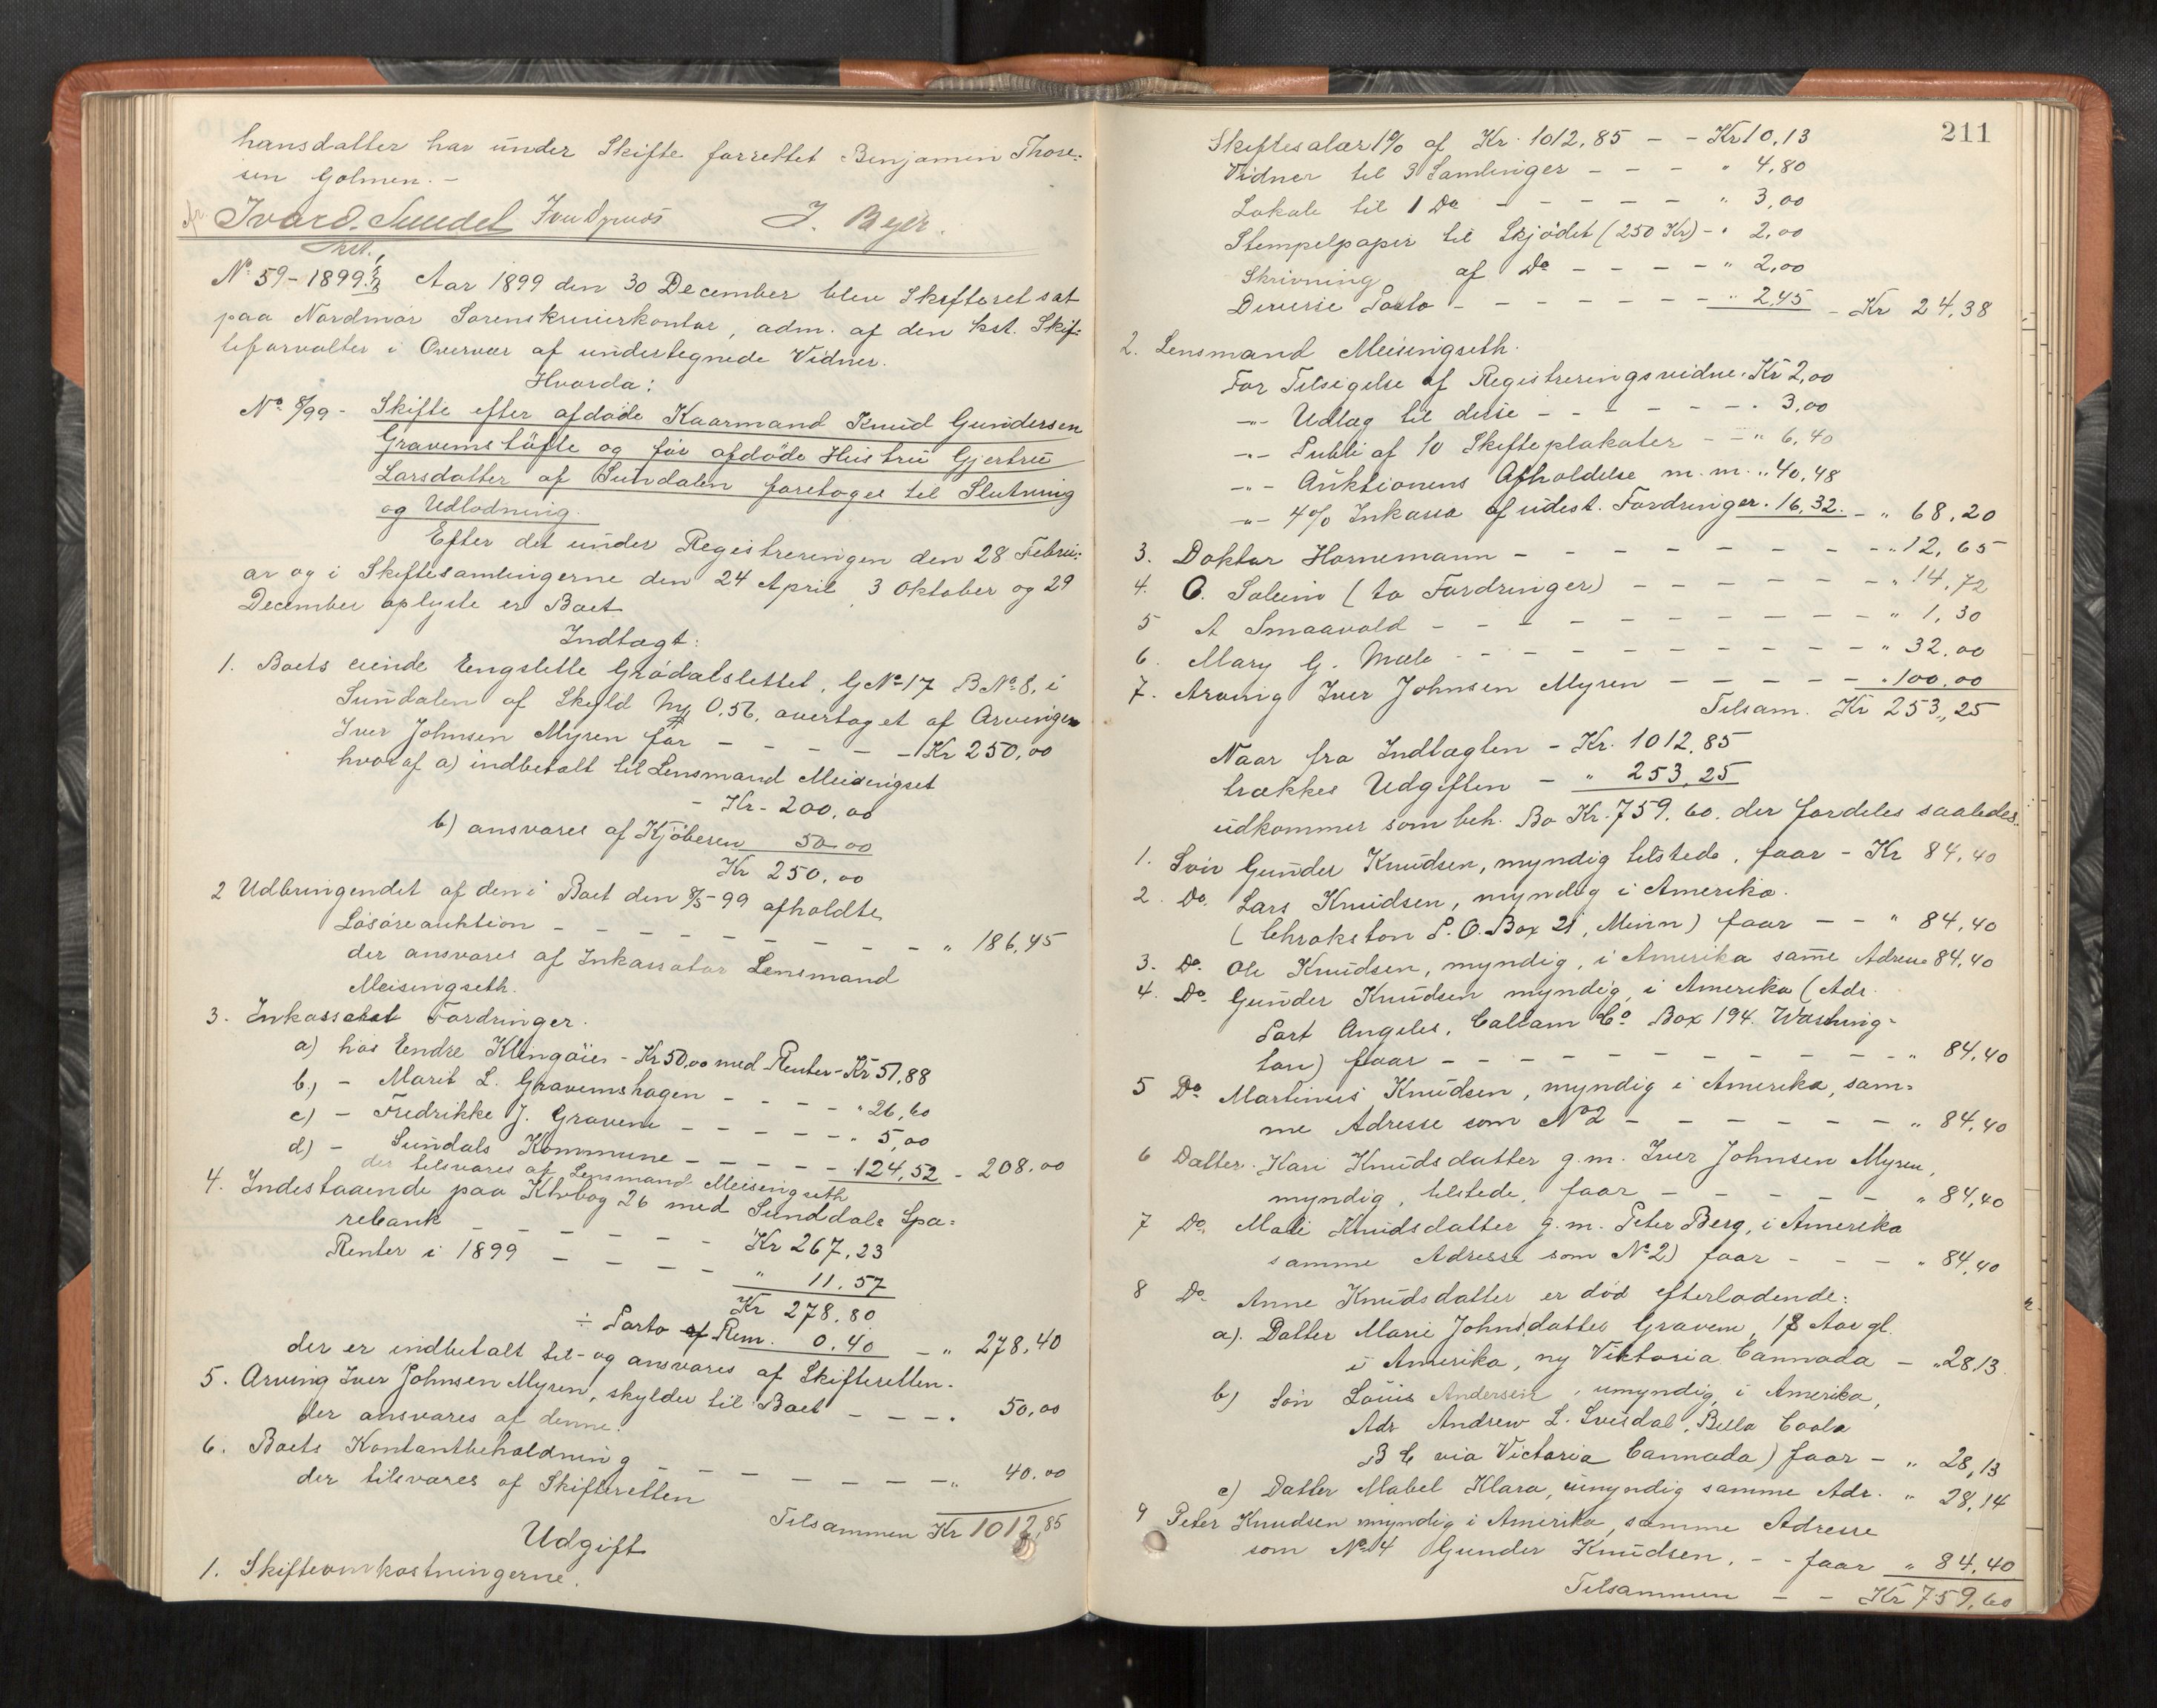 hansdatter har under Skifte forrettet Benjamin Thore-
sen Golmen. -
Ivar O. Sundet J. Beyer.
kst.
No 59-1899. Aar 1899 den 30 December blev Skifteret sat
paa Nordmør Sorenskriverkontor, adm. af den kst. Skif-
teforvalter i Overvær af undertegnede Vidner.
Hvorda:
No 8/99 - Skifte efter afdøde Kaarmand Knud Gundersen
Gravemsløfte og før afdøde Hustru Gjertru
Larsdatter af Sundalen foretoges til Slutning
og Udlodning.
Efter det under Registreringen den 28 Febru-
ar og i Skiftesamlingerne den 24 April, 3 Oktober og 29
December oplyste er Boet
Indtægt:
1. Boets eiende Engslette Grødalslettet, GNo 17 BNo 8, i
Sundalen af Skyld My 0.56, overtaget af Arvingen
Iver Johnsen Myren for - - - - - Kr 250,00
hvoraf a) indbetalt til Lensmand Meisingset
- Kr. 200,00
b) ansvares af Kjøberen 50.00
Kr 250,00
2 Udbringendet af den i Boet den 8/5-99 afholdte
Løsøreauktion - - - - - - - - - " 186,45
der ansvares af Inkassator Lensmand
Meisingseth.
3. Inkasseret Fordringer.
a) hos Endre Klingøien - Kr 50,00 med Renter - Kr 51,88
b) - Marit L. Gravemshagen - - - - " 26,60
c) - Fredrikke J. Gravem - - - - - " 5,00
d) - Sundals Kommune - - - - - 124,52 - 208.00
der tilsvares af Lensmand Meisingseth
4. Indestaaende paa Khvbog 26 med Sunddals Spa-
rebank - - - - - - Kr 267,23
Renter i 1899 - - - - " 11.57
Kr 278,80
÷ Porto af Rem. 0.40 - " 278,40
der er indbetalt til- og ansvares af Skifteretten.
5. Arving Iver Johnsen Myren, skylder til Boet - - - . 50,00
der ansvares af denne.
6. Boets Kontantbeholdning - - - - - - - " 40.00
der tilsvares af Skifteretten
Tilsammen Kr 1012,85
Udgift
1. Skifteomkostningerne.
211
Skiftesalær 1% af Kr. 1012,85 - - Kr 10,13
Vidner til 3 Samlinger - - - " 4,80
Lokale til 1 Do - - - - - " 3,00
Stempelpapir til Skjødet (250 Kr) - " 2,00
Skrivning af Do - - - - " 2,00
Diverse Porto - - - - - - - " 2,45 - Kr 24,38
2. Lensmand Meisingseth.
For Tilsigelse af Registreringsvidne. Kr 2,00
-"- Udlæg til disse - - - - - - . 3,00
-"- Publi af 10 Skifteplakater - - " 6,40
-"- Auktionens Afholdelse m. m. " 40,48
-"- 4% Inkasso af udest. Fordringer. 16,32. - " 68,20
3. Doktor Hornemann - - - - - - - - " 12,65
4. O. Soleim (to Fordringer) - - - - - - " 14,72
5 A Smaavold - - - - - - - - - - " 1,30
6. Mary G. Mæle - - - - - - - - - " 32.00
7. Arving Iver Johnsen Myren - - - - - " 100.00
Tilsam. Kr 253,25
Naar fra Indtægten - Kr. 1012,85
trækkes Udgiften - " 253,25
udkommer som beh. Bo Kr. 759.60. der fordeles saaledes:
1. Søn Gunder Knudsen, myndig tilstede, faar - Kr 84,40
2. Do. Lars Knudsen, myndig i Amerika.
(Chrokston P. O. Box 21, Minn) faar - - " 84,40
3. Do. Ole Knudsen, myndig, i Amerika same Adresse 84,40
4. Do. Gunder Knudsen myndig, i Amerika (Adr.
Port Angeles, Callam Co. Box 194. Washing-
ton) faar - - - - - - - - - - - " 84,40
5 Do Martinus Knudsen, myndig i Amerika, sam-
me Adresse som No 2 - - - - - - " 84,40
6 Datter. Kari Knudsdatter g.m. Iver Johnsen Myren,
myndig, tilstede, faar - - - - - " 84,40
7 Do. Mali Knudsdatter g.m. Peter Berg, i Amerika
samme Adresse som No 2) faar - - - " 84,40
8 Do. Anne Knudsdatter er død efterladende:
a). Datter Marie Johnsdatter Gravem, 18 Aar gl.
i Amerika, ny Viktoria Cannada - " 28,13.
b) Søn Louis Andersen, umyndig, i Amerika,
Adr Andrew L. Svisdal, Bella Coola
B C via Victoria Cannada) faar - " 28,13
c) Datter Mabel Klara, umyndig samme Adr. " 28,14
9 Peter Knudsen myndig i Amerika, samme Adresse
som No 4 Gunder Knudsen, - - faar " 84,40
Tilsammen - - Kr 759,60